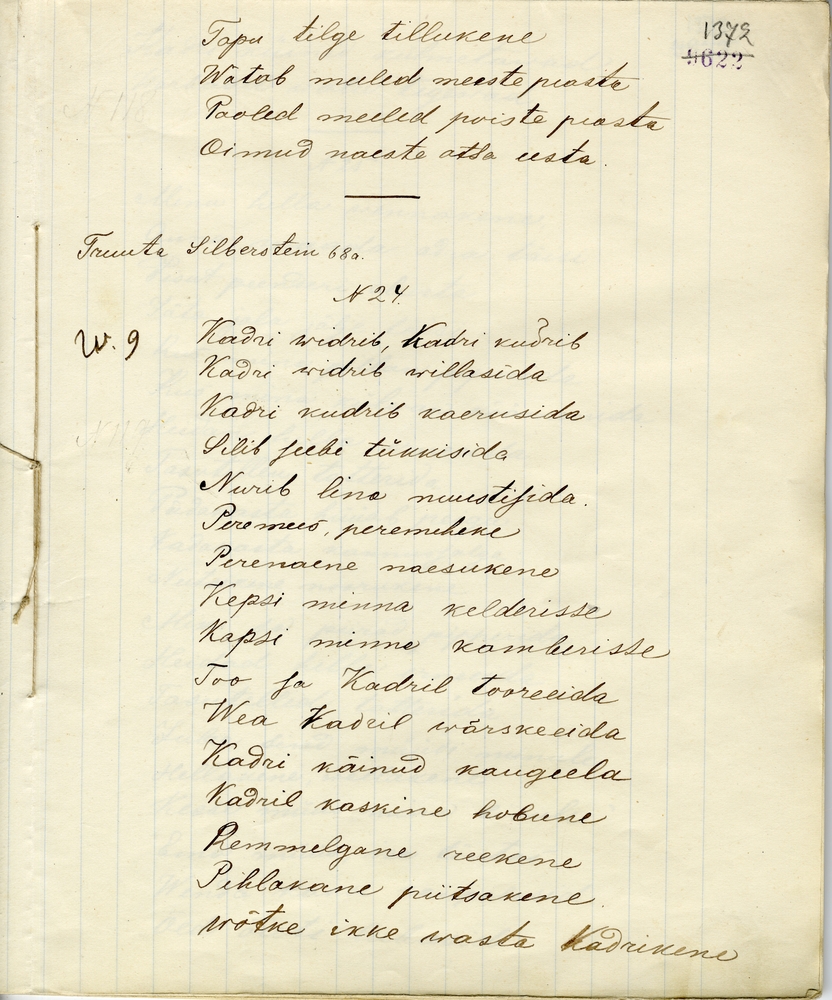 1372
4622
Tapu tilge tillukene
Wõtab meeled meeste peasta
Pooled meeled poiste peasta
Oimud naeste otsa eesta.
Truuta Silberstein 68a.
N 24.
W. 9
Kadri widrib, Kadri kudrib
Kadri widrib willasida
Kadri kudrib kaerusida
Silib seebi tükkisida
Nurib lina nuustisida.
Peremees, peremeheke
Perenaene naesukene
Kepsi minna kelderisse
Kapsi minna kamberisse
Too sa Kadril tooreeida
Wea Kadril wärskeeida
Kadri käinud kaugeela
Kadril kaskine hobune
Remmelgane reekene
Pihlakane piitsakene
wõtke ikke wasta Kadrikene